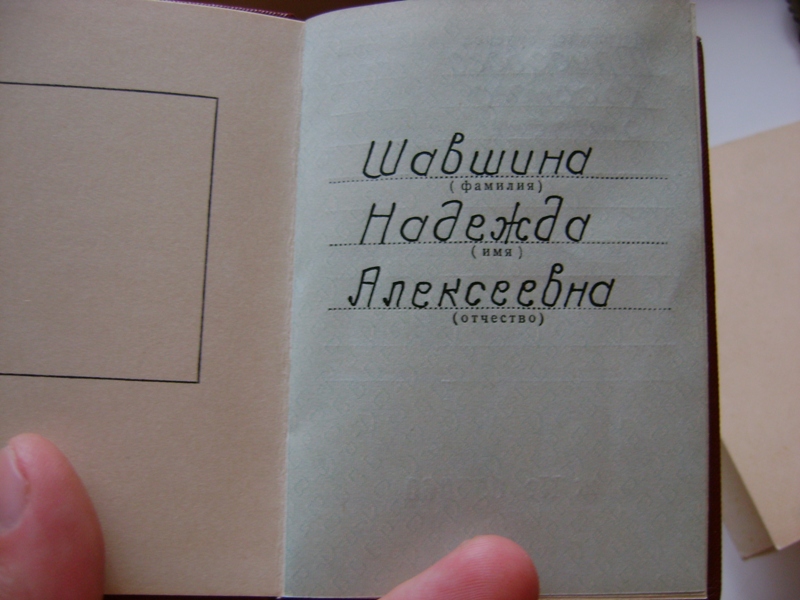 Шавшина
(фамилия)
Надежда
(имя)
Алексеевна
(отчество)